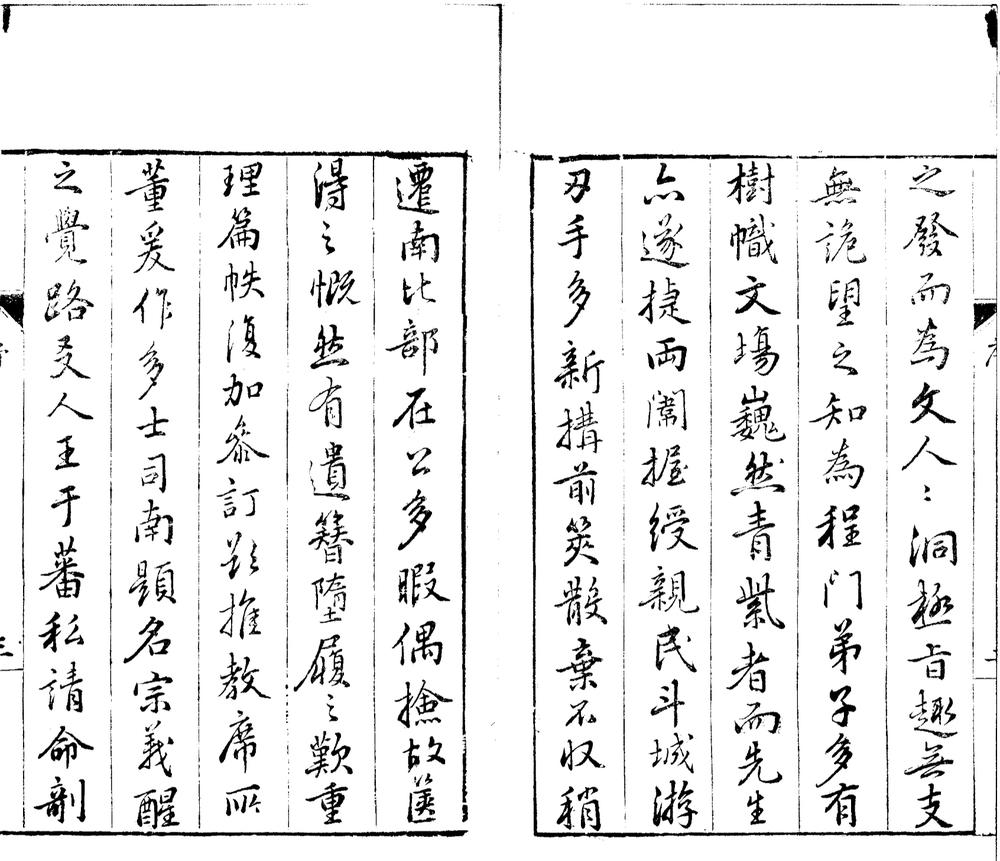 之發而為文人〻洞極旨趣無支
無詭朢之知為程門弟子多有
樹幟文場巍然青紫者而先生
亦遂捷兩闈握綬親民斗城游
刃手多新搆前筴散棄不收稍
遷南比部在公多暇偶撿故篋
得之慨然有遺簪墮履之歎重
理篇帙復加叅訂欵推教席所
董爰作多士司南題名宗義醒
之覺路叐人王于蕃私請命剞